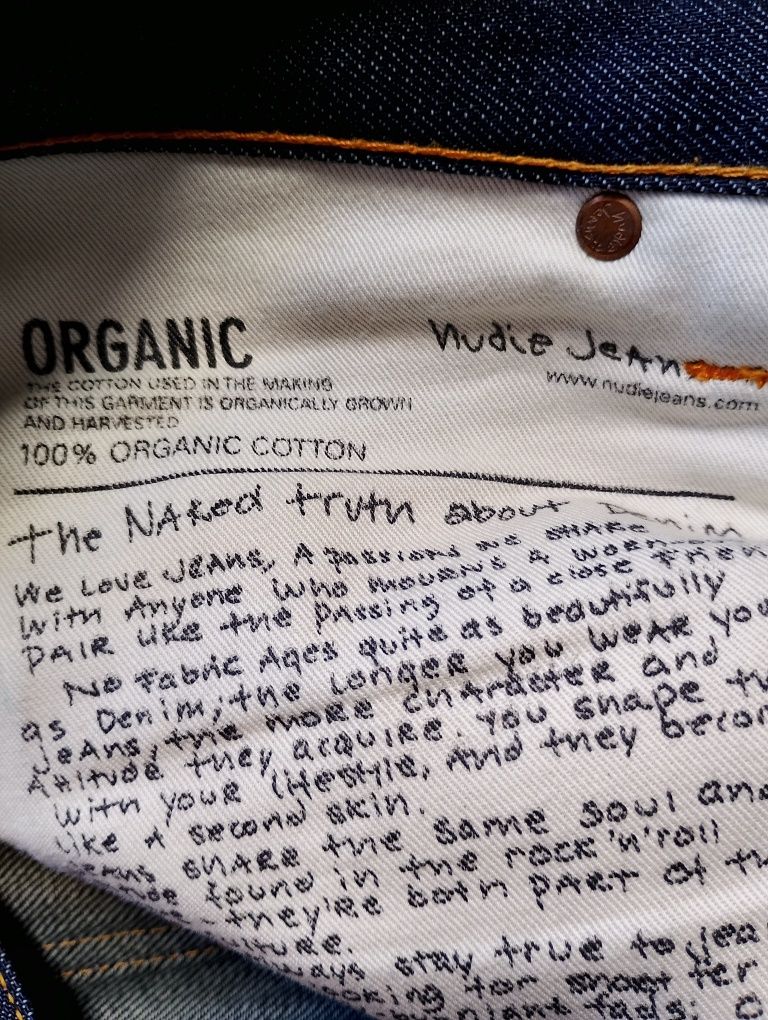 nudie Jeans
ORGANIC
nudie Jean
www.nudiejeans.com
THE COTTON USED IN THE MAKING
OF THIS GARMENT IS ORGANICALLY GROWN
AND HARVESTED
100% ORGANIC COTTON
the NAKed truth about Denim
We Love JeAns, A passion we sHARe
with Anyone who mourns A worn
pAIR like the passing of a close frien
No fabric Ages quite as beautifully
as Denim; the Longer you weAR you
JeAns, the more character and
Attitude they acquire. You shape th
with your lifestyle, And they becom
like A second skin.
Jeans sHARe the same soul and
found in the rock 'n' roll
they're both pART of th
stay true to Jea
for
fads;